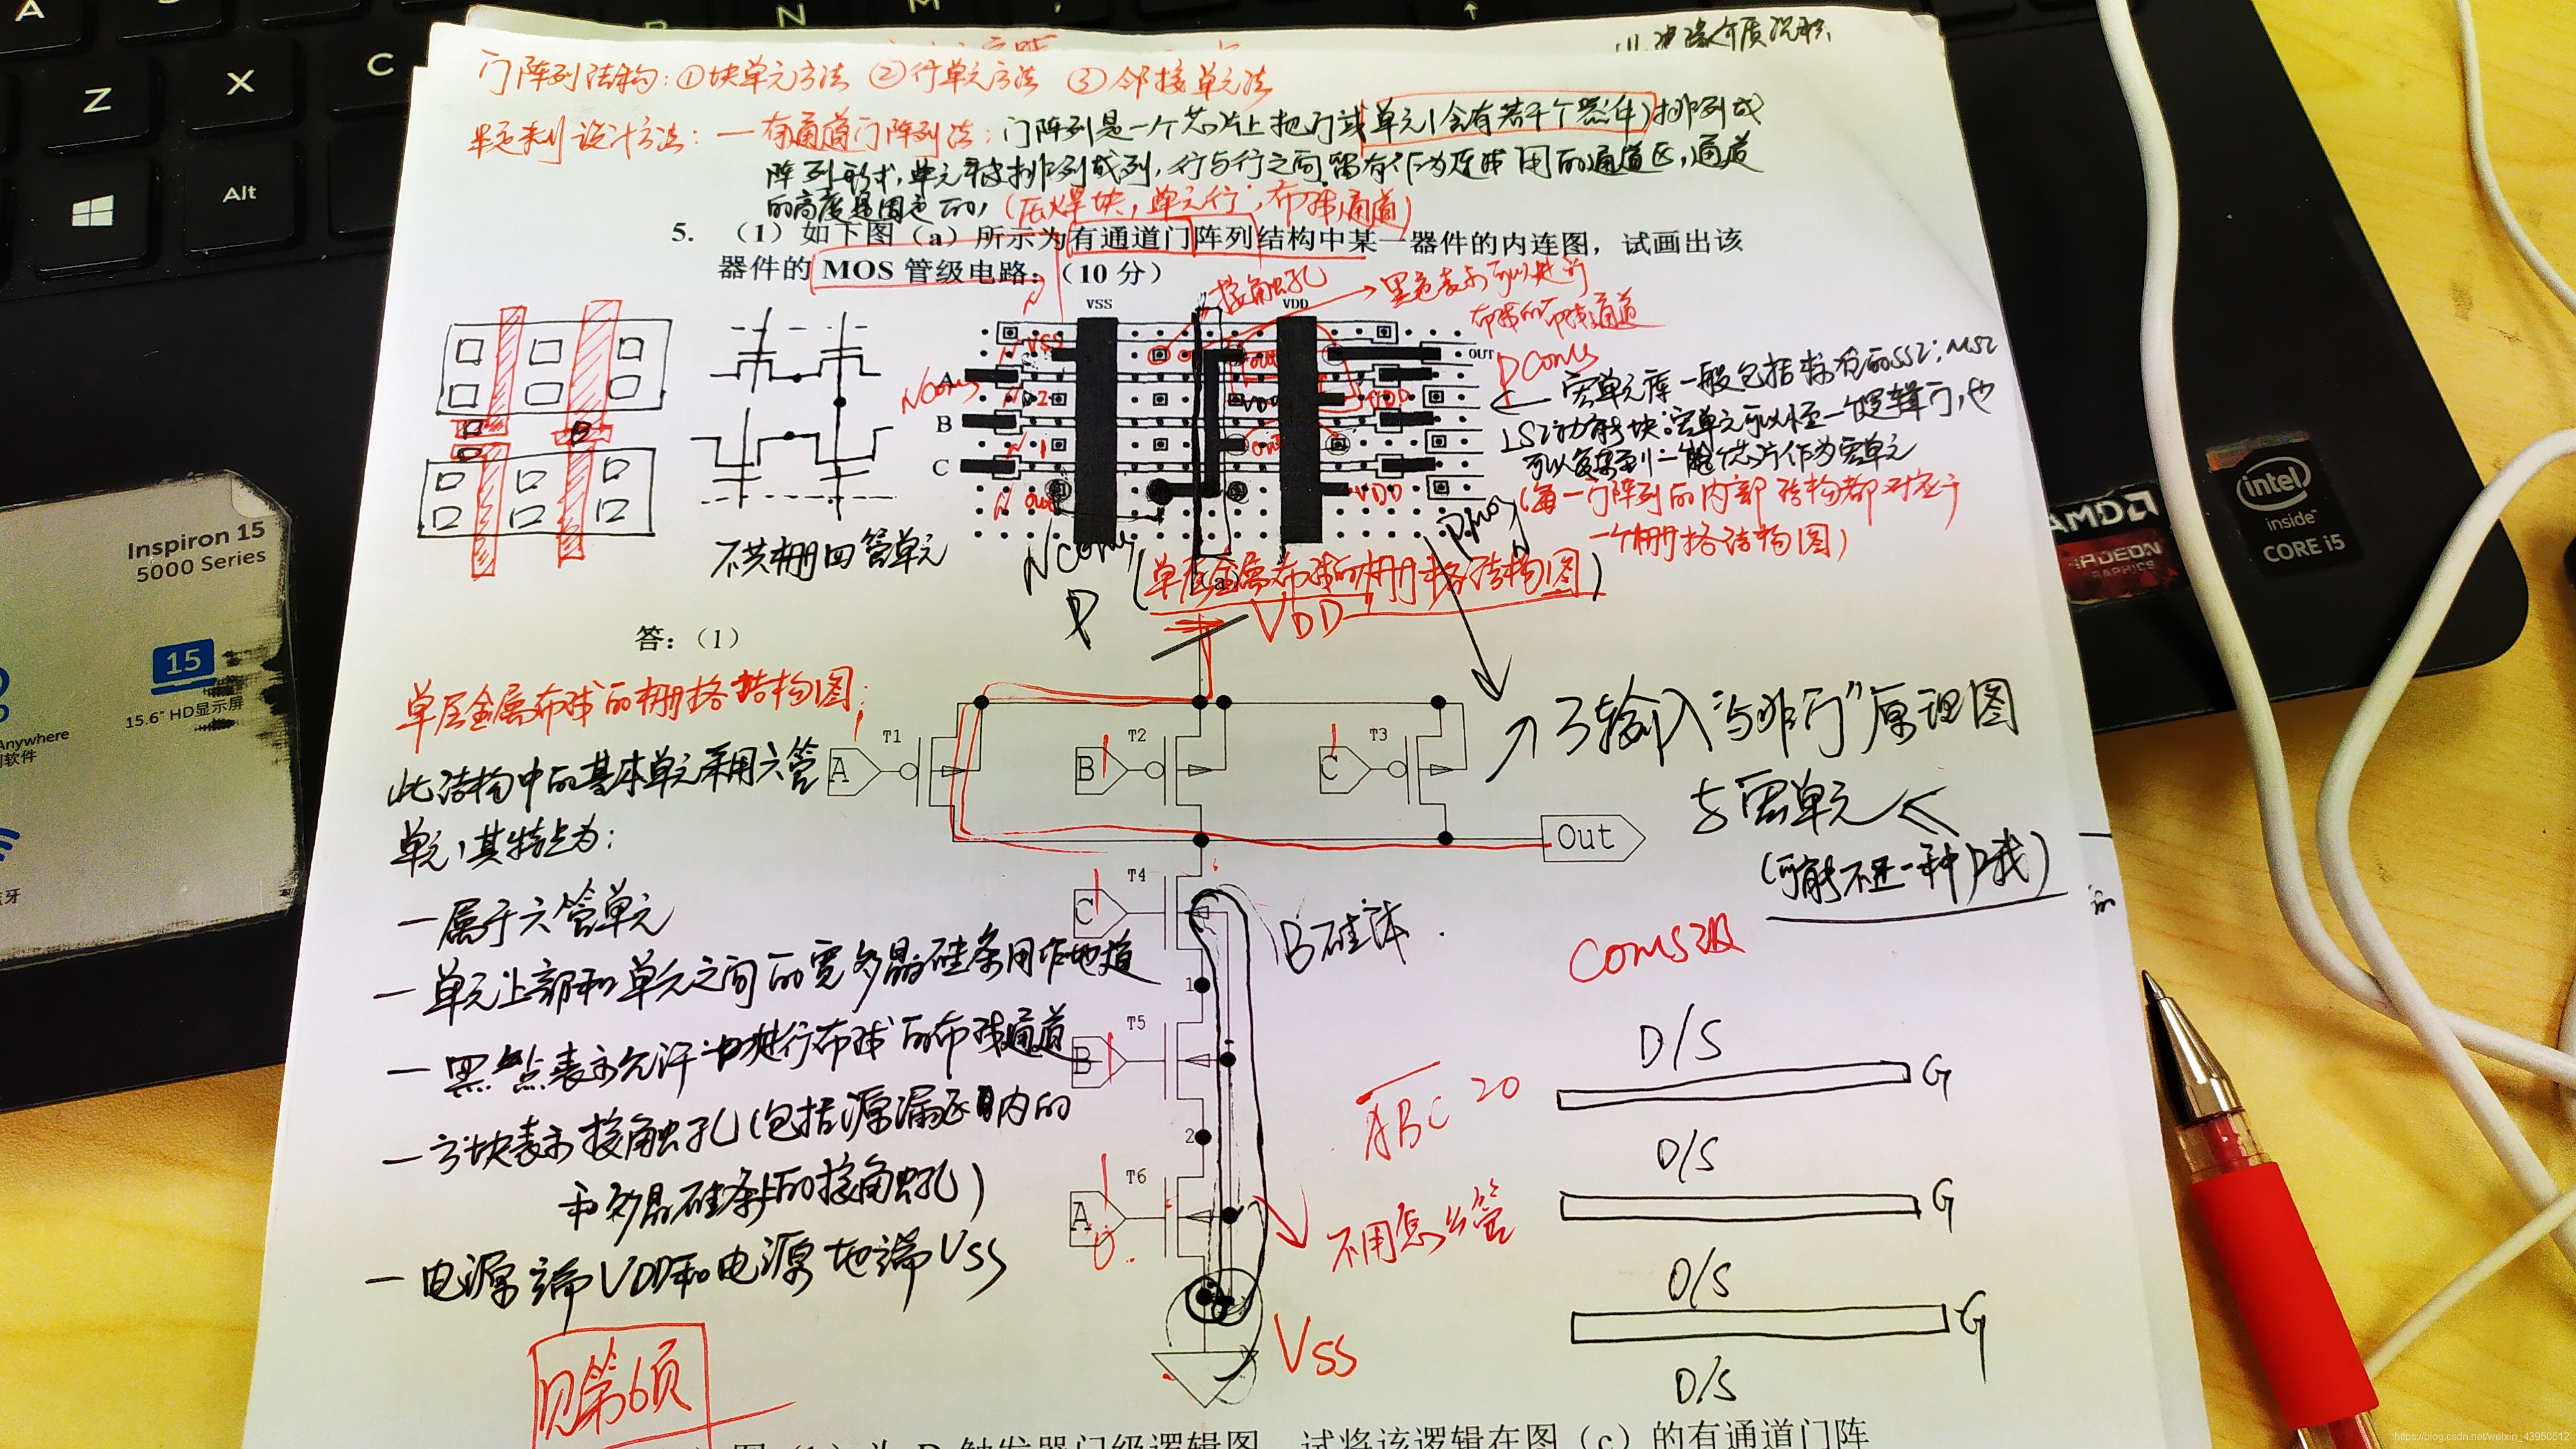 A
N
M
Z
X
C
Alt
门阵列结构:①块单元方法 ②行单元方法 ③邻接单元法
一有通道门阵列法:门阵列是一个芯片上把门或单元(含有若干个器件)排列成
阵列形式,单元被排列成列,行与行之间留有作为连线用的通道区,通道
的高度是固定的,(压焊块,单元行,布线通道)
5. (1)如下图(a)所示为有通道门阵列结构中某一器件的内连图,试画出该
器件的 MOS 管级电路:(10 分)
接触孔
黑色表示可以进行
布线的布线通道
VSS
VDD
OUT
A
B
C
宏单元库一般包括标准的SSI;MSI
LSI功能块;宏单元可以小至一个逻辑门,也
可以复杂到一整个芯片作为宏单元
(每一门阵列的内部结构都对应于
一个栅格结构图)
不共栅四管单元
(单层金属布线的栅格结构图)
VDD
P
答:(1)
单层金属布线的栅格结构图:
此结构中的基本单元采用六管
单元,其特点为:
一属于六管单元
一单元上部和单元之间的宽多晶硅条用作地道
一黑点表示允许进行布线的布线通道
一方块表示接触孔(包括源漏区内的
和多晶硅条上的接触孔)
一电源端VDD和电源地端VSS
见第6页
A
T1
B
T2
C
T3
Out
3输入"与非门"原理图
与宏单元
(可能不止一种户我)
C
T4
B硅体.
1
B
T5
2
A
T6
VSS
COMS级
ABC
不用怎么管
D/S
G
D/S
G
D/S
G
D/S
Inspiron 15
5000 Series
15
15.6" HD显示屏
Anywhere
AMD
RADEON
GRAPHICS
intel
inside
CORE i5
https://blog.csdn.net/weixin_43950612